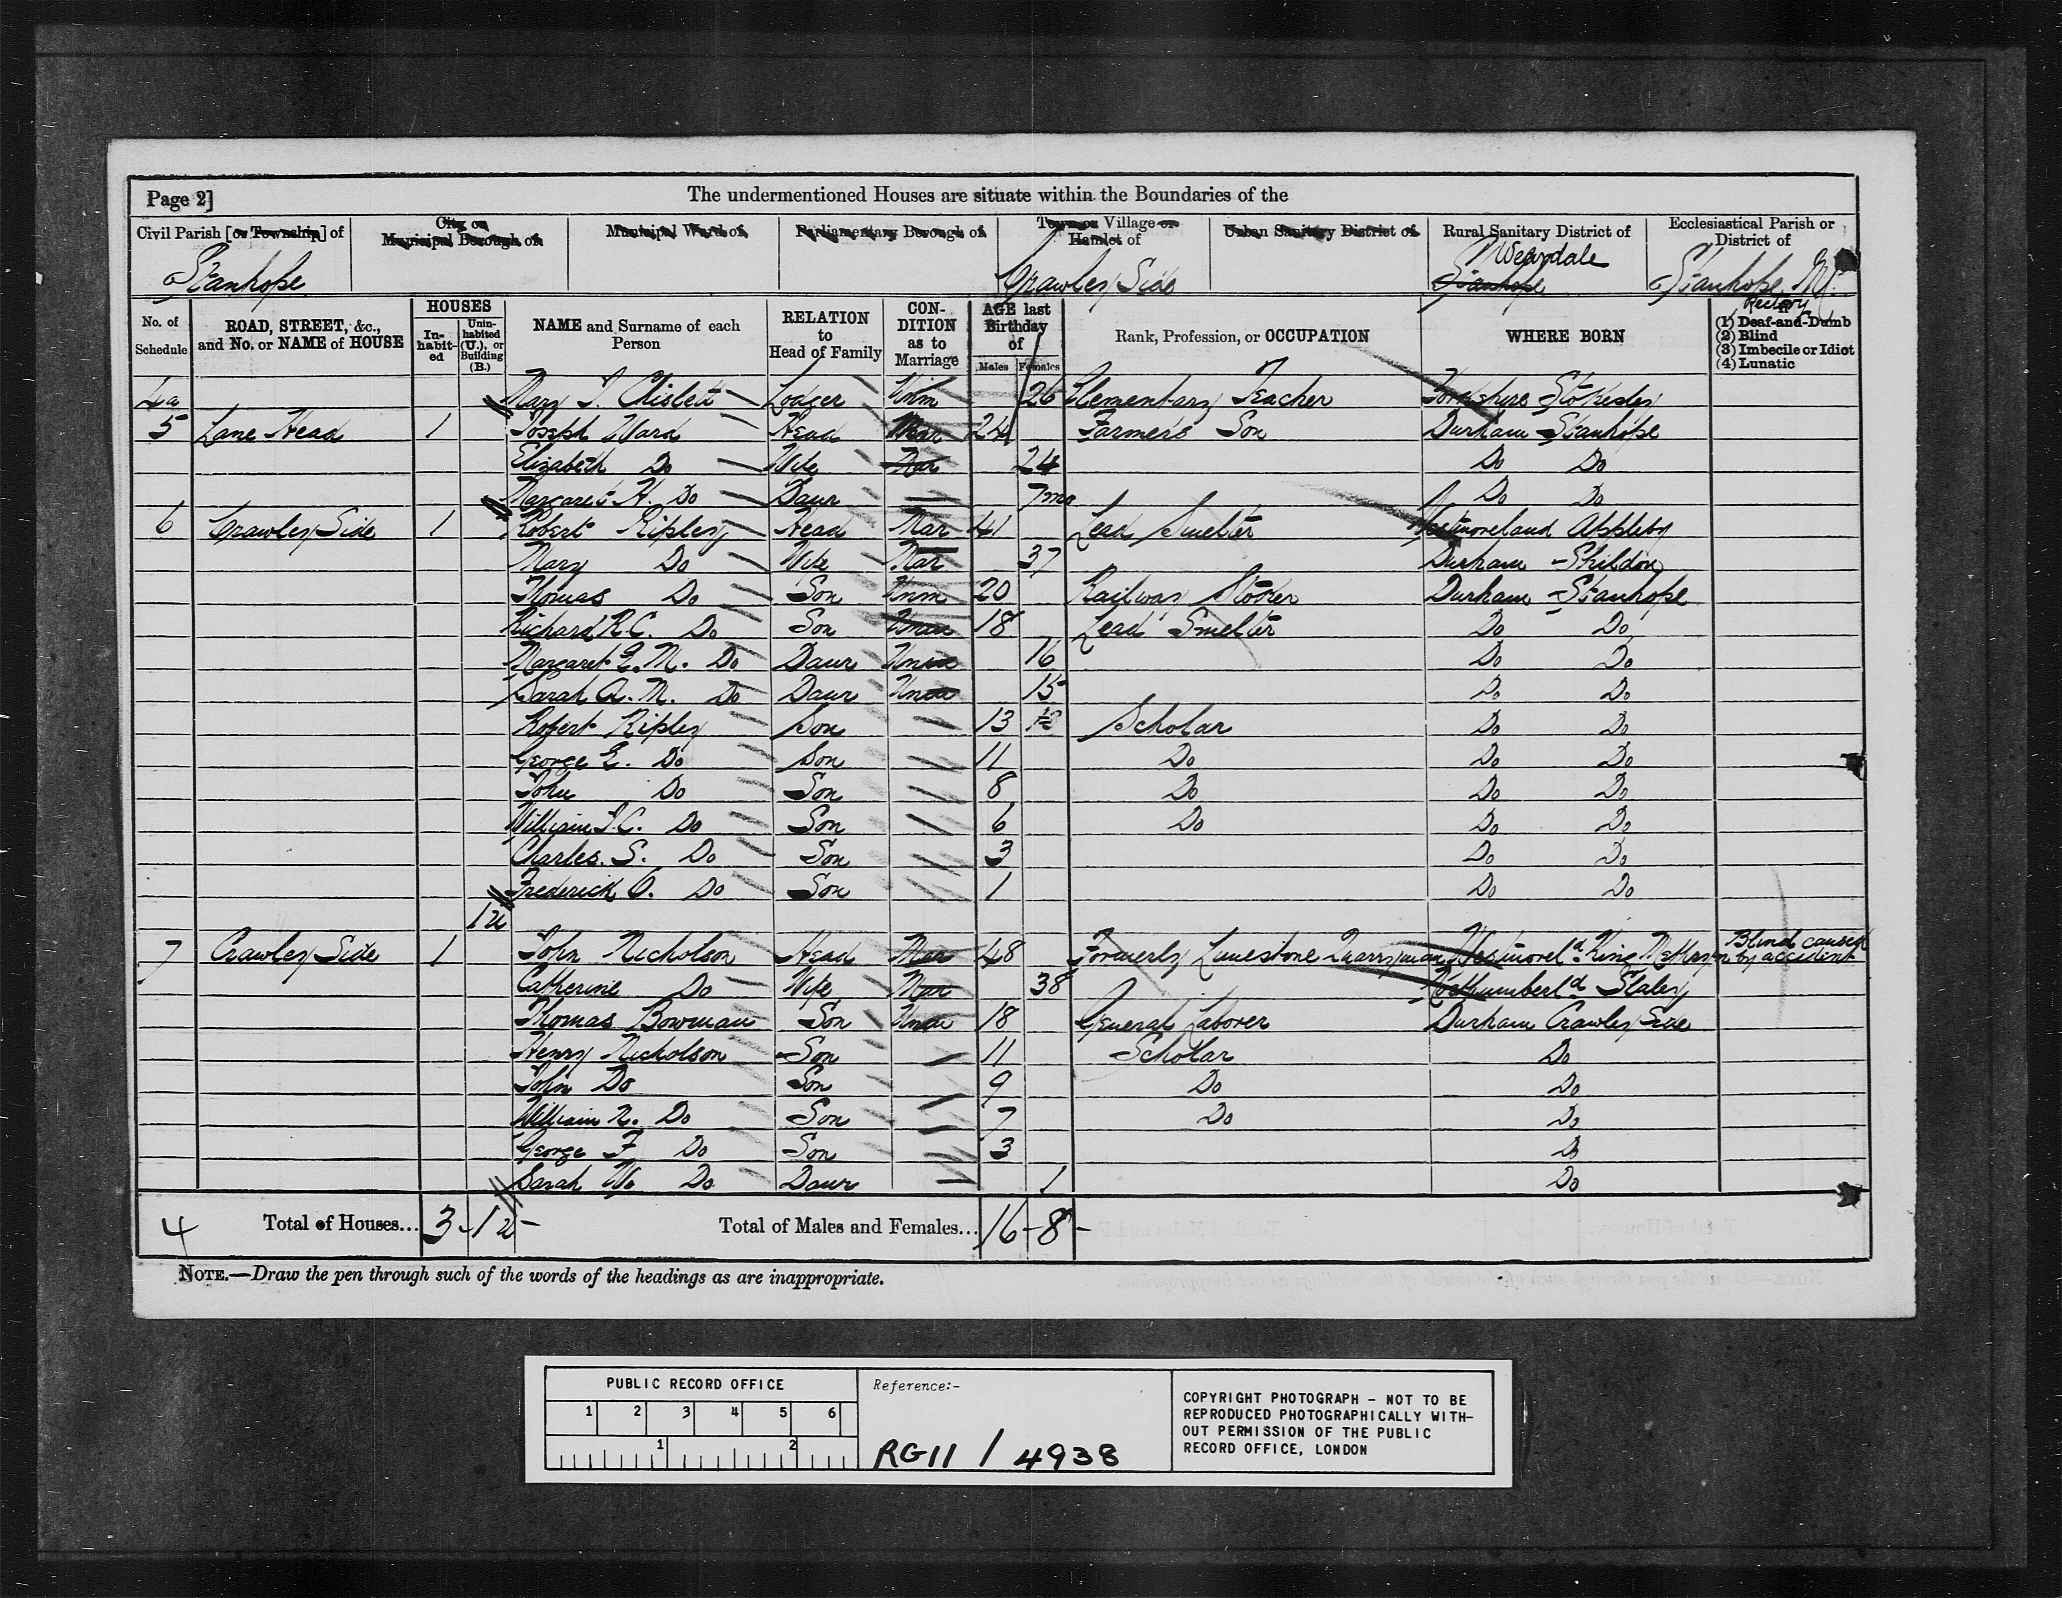 Page 2] The undermentioned Houses are situate within the Boundaries of the
Civil Parish [or Township] of City or Municipal Borough of Municipal Ward of Parliamentary Borough of Town or Village or Hamlet of Urban Sanitary District of Rural Sanitary District of Ecclesiastical Parish or District of
Stanhope Crawley Side Weardale Stanhope Stanhope Rectory
No. of Schedule ROAD, STREET, &c., and No. or NAME of HOUSE HOUSES In-habit-ed Unin-habited (U.), or Building (B.) NAME and Surname of each Person RELATION to Head of Family CON-DITION as to Marriage AGE last Birthday of Males Females Rank, Profession, or OCCUPATION WHERE BORN If (1) Deaf-and-Dumb (2) Blind (3) Imbecile or Idiot (4) Lunatic
4a Mary J. Chislett Lodger Unm 26 Elementary Teacher Yorkshire Stokesley
5 Lane Head 1 Joseph Ward Head Mar 24 Farmers Son Durham Stanhope
Elizabeth Do Wife Mar 24 Do Do
Margaret H. Do Daur — 7mo Do Do
6 Crawley Side 1 Robert Ripley Head Mar 41 Lead Smelter Westmoreland Appleby
Mary Do Wife Mar 37 Durham - Shildon
Thomas Do Son Unm 20 Railway Stoker Durham - Stanhope
Richard R.C. Do Son Unm 18 Lead Smelter Do Do
Margaret E. M. Do Daur Unm 16 Do Do
Sarah A. M. Do Daur Unm 15 Do Do
Robert Ripley Son — 13 Scholar Do Do
George E. Do Son — 11 Do Do Do
John Do Son — 8 Do Do Do
William S.C. Do Son — 6 Do Do Do
Charles. S. Do Son — 3 Do Do
Frederick O. Do Son — 1 Do Do
1u
7 Crawley Side 1 John Nicholson Head Mar 48 Formerly Limestone Quarryman Westmorel.d King Blind caused by accident
Catherine Do Wife Mar 38 Nothumberl.d Slaley
Thomas Bowman Son Unm 18 General Laborer Durham Crawley Side
Henry Nicholson Son — 11 Scholar Do
John Do Son — 9 Do Do
William N. Do Son — 7 Do Do
George F Do Son — 3 Do
Sarah W. Do Daur — 1 Do
4 Total of Houses... 3 - 1u - Total of Males and Females... 16 - 8 -
NOTE.—Draw the pen through such of the words of the headings as are inappropriate.
PUBLIC RECORD OFFICE
1 2 3 4 5 6
1 2
Reference:-
RG11 / 4938
COPYRIGHT PHOTOGRAPH - NOT TO BE
REPRODUCED PHOTOGRAPHICALLY WITH-
OUT PERMISSION OF THE PUBLIC
RECORD OFFICE, LONDON